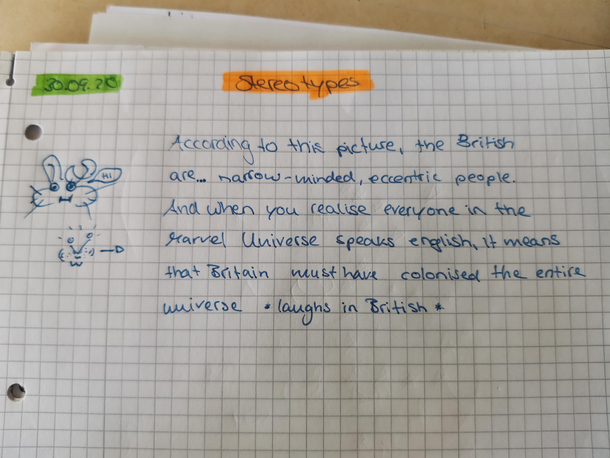 30.09.20
Stereotypes
According to this picture, the British
are... narrow-minded, eccentric people.
Hi
And when you realise everyone in the
Marvel Universe speaks english, it means
that Britain must have colonised the entire
universe *laughs in British*